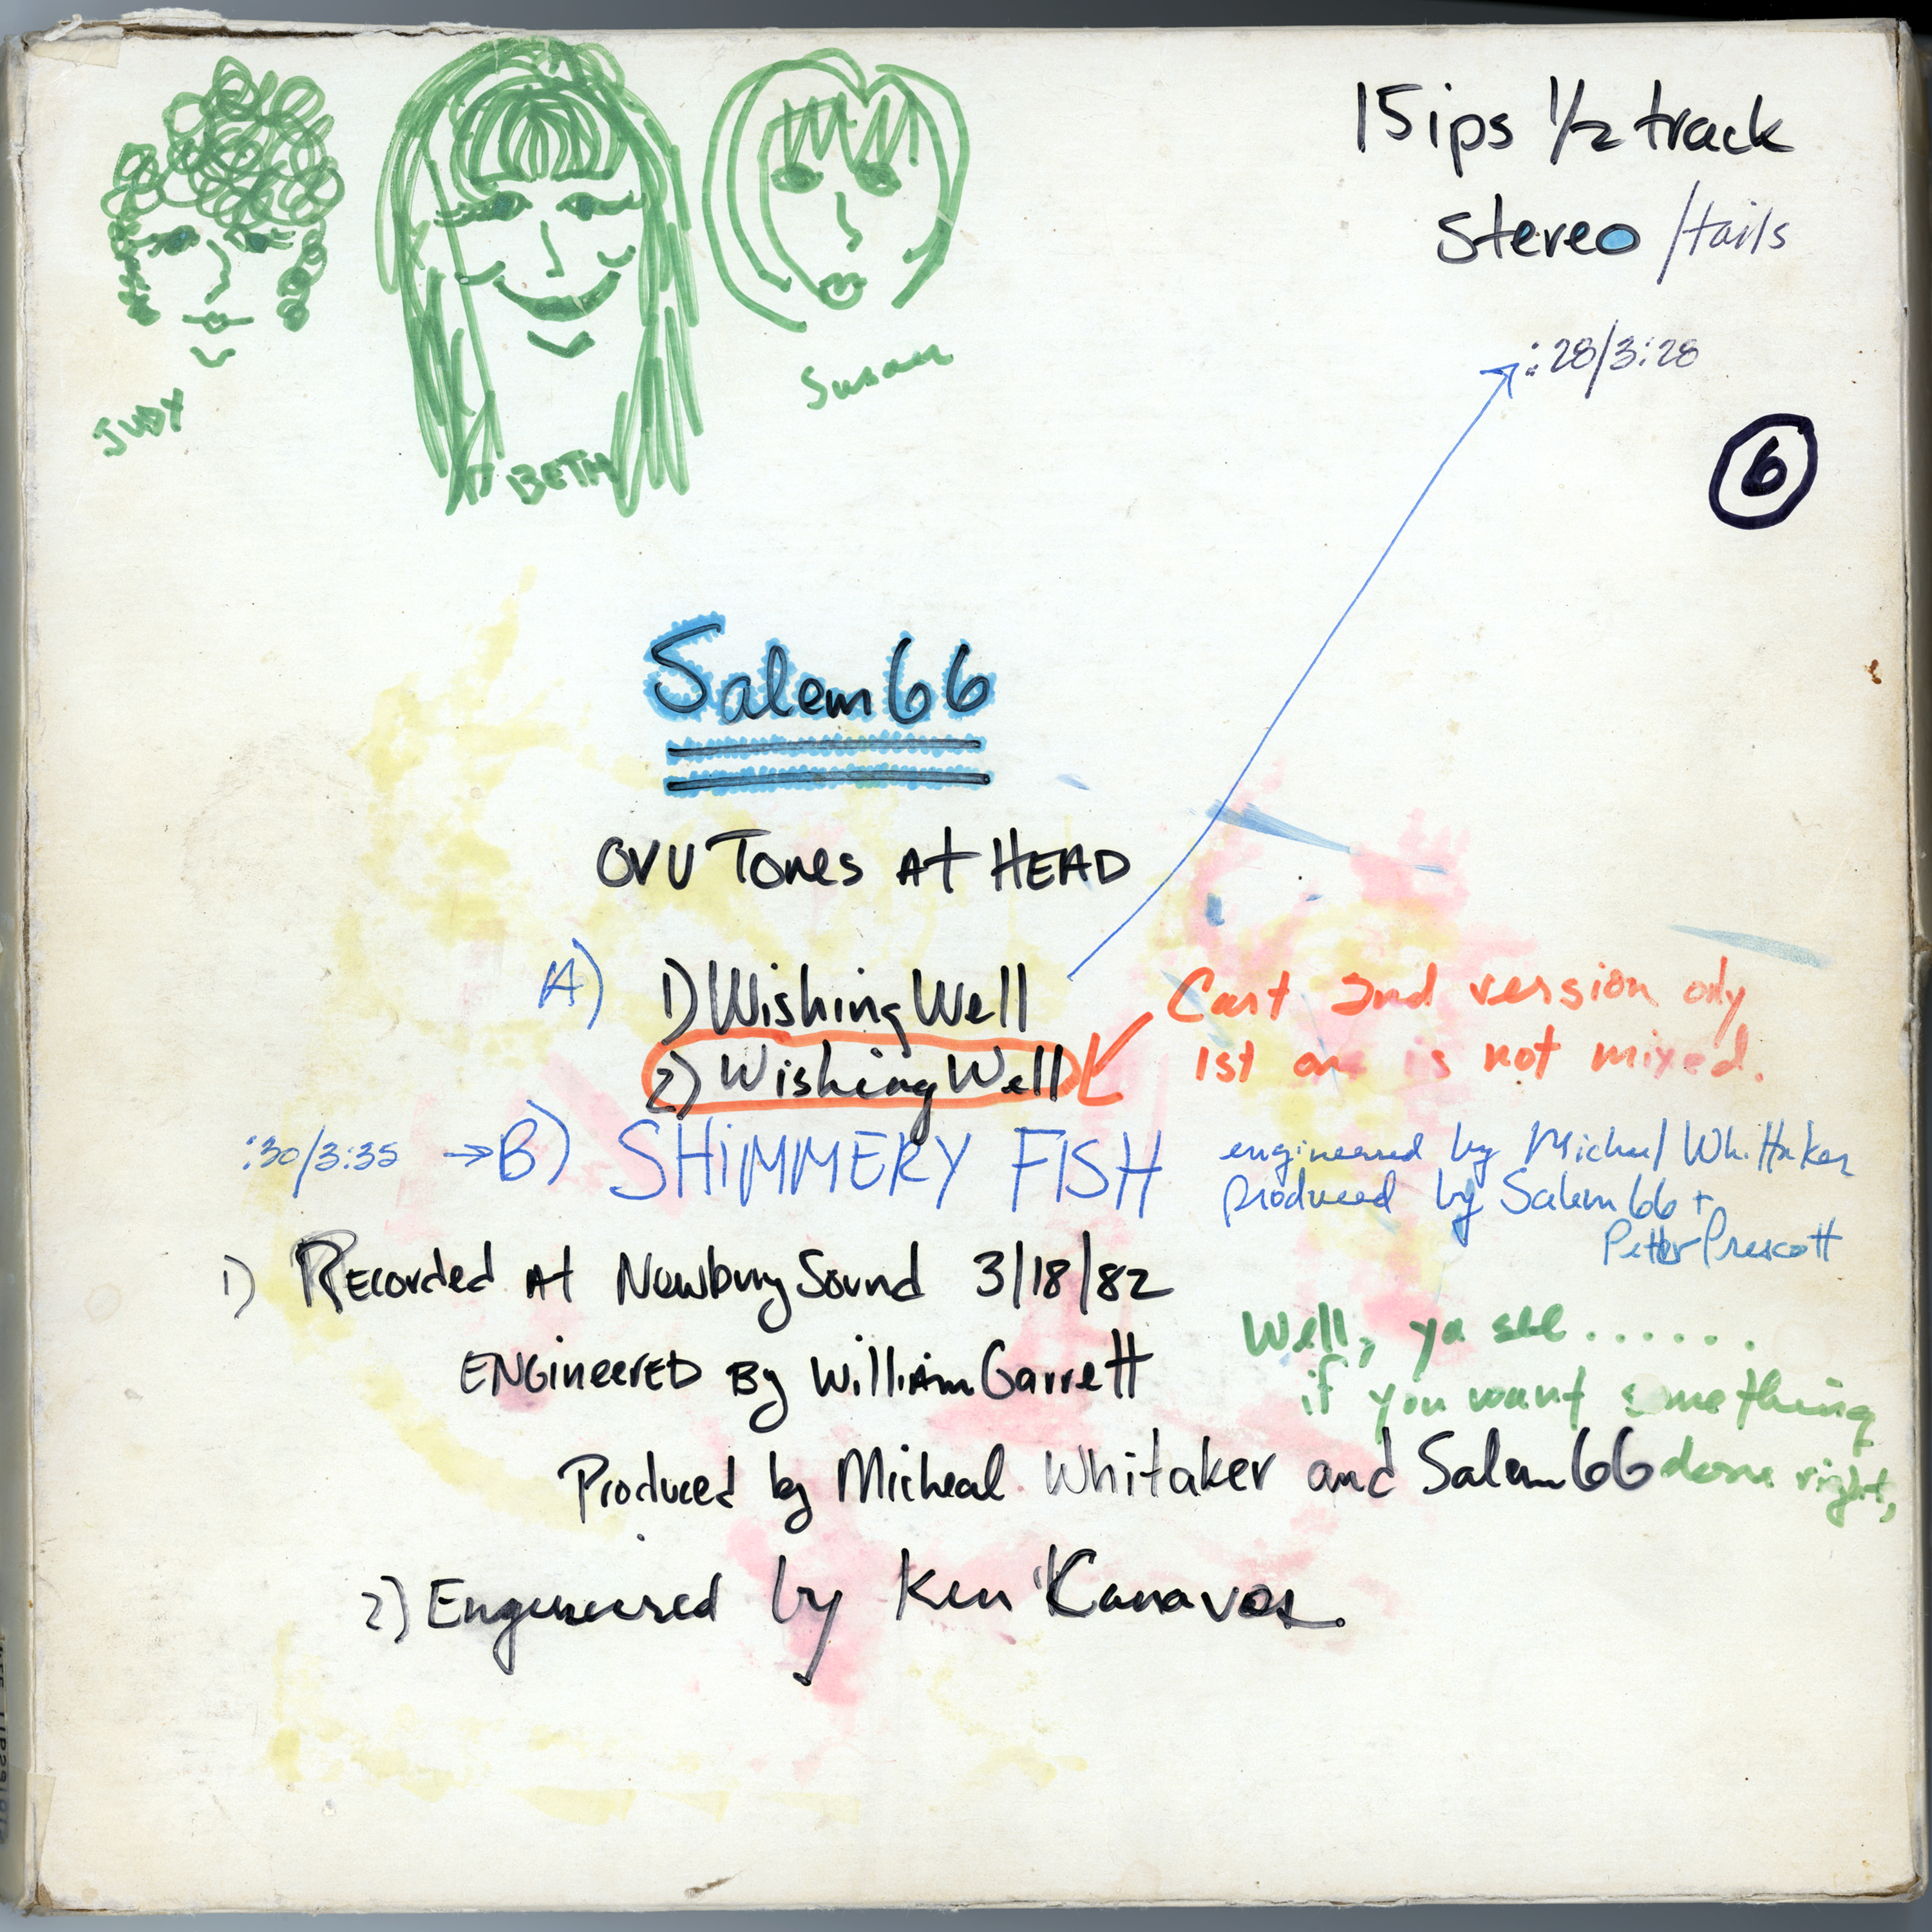 JUDY
BETH
Susan
15ips 1/2 track
stereo /tails
:28/3:28
6
Salem 66
OVU Tones At HEAD
A) 1) Wishing Well
2) Wishing Well
Cart 2nd version only
1st one is not mixed.
:30/3:35 → B) SHiMMERY FISH
engineered by Michael Whittaker
produced by Salem 66 +
Peter Prescott
1) REcorded At Newbury Sound 3/18/82
ENGineerED By William Garrett
Produced by Micheal Whitaker and Salem 66
Well, ya see ......
if you want something
done right,
2) Engineered by Ken Kanavos.